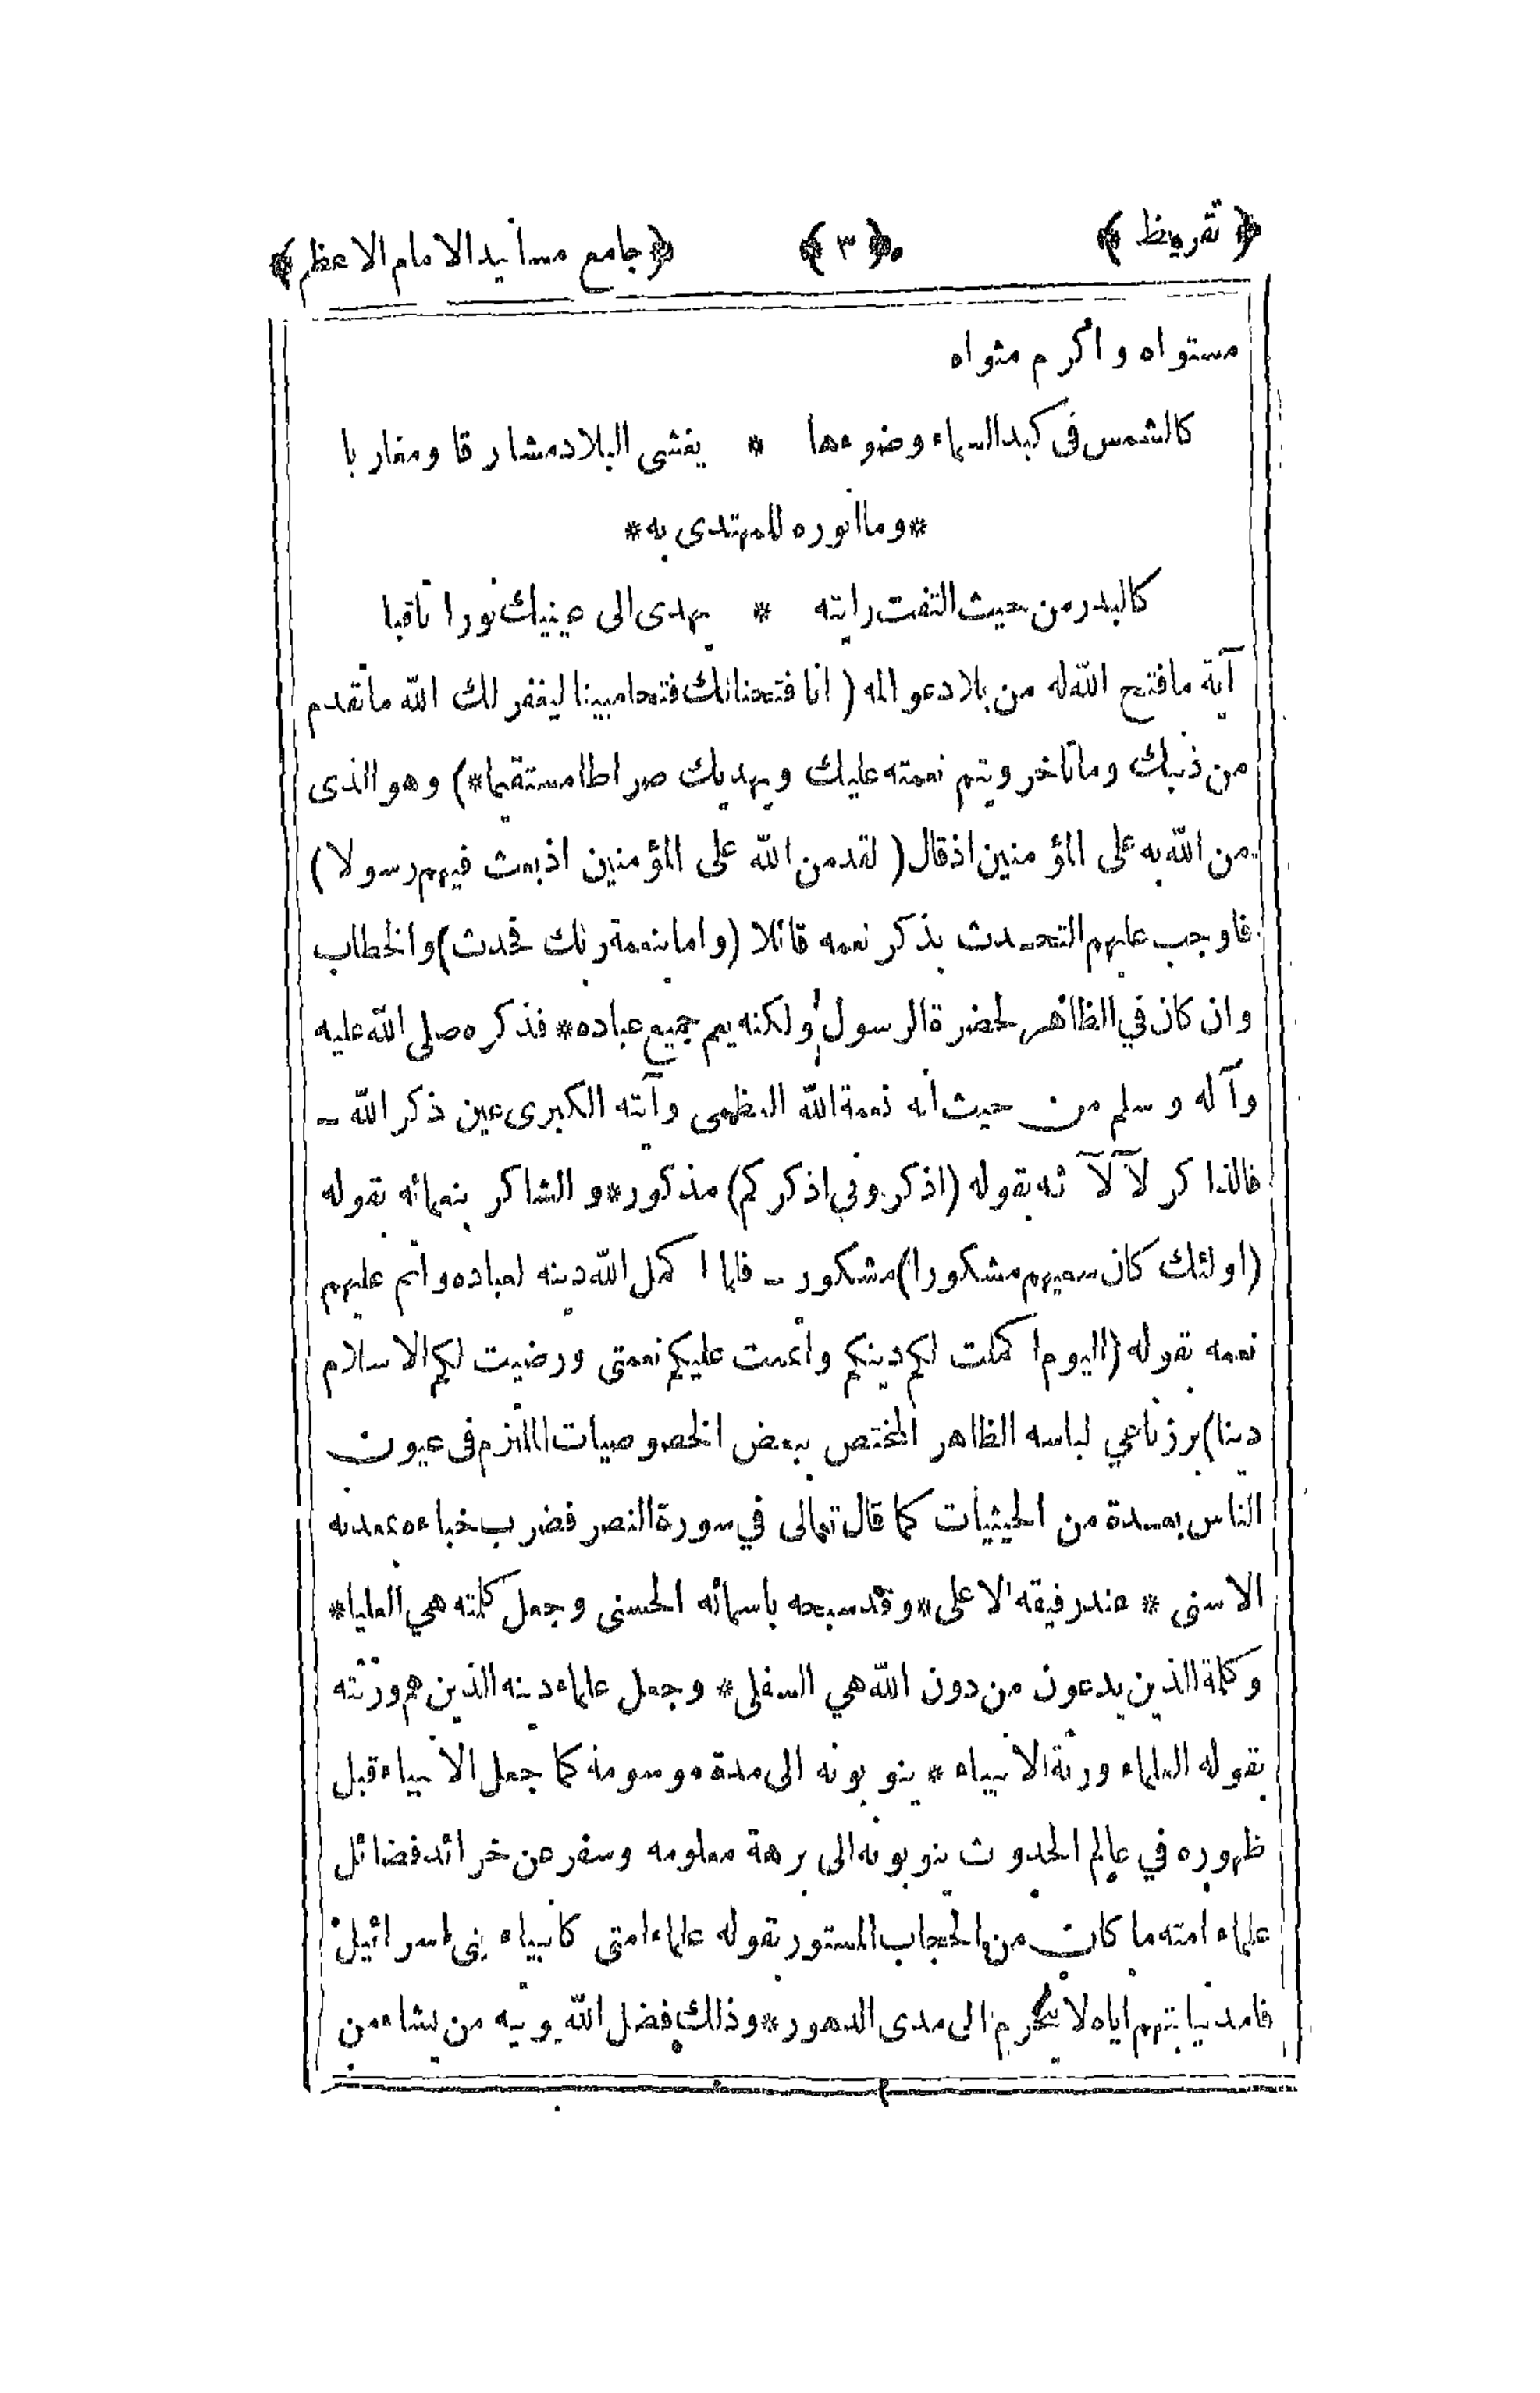 ﴿تقريظ﴾ ﴿٣﴾ ﴿جامع مسانيد الامام الاعظم﴾
مستواه و اكرم مثواه
كالشمس فى كبد السماء وضوءها * يغشى البلاد مشارقا ومغاربا
*وما انوره للمهتدى به*
كالبدر من حيث التفت رايته * يهدى الى عينيك نورا ثاقبا
آية ما فتح الله له من بلاد عواله (انا فتحنا لك فتحا مبينا ليغفر لك الله ما تقدم
من ذنبك وما تأخر ويتم نعمته عليك ويهديك صراطا مستقيما*) وهو الذى
من الله به على المؤمنين اذ قال (لقد من الله على المؤمنين اذ بعث فيهم رسولا)
فاوجب عليهم التحدث بذكر نعمه قائلا (واما بنعمة ربك فحدث) والخطاب
وان كان في الظاهر لحضرة الرسول ولكنه يعم جميع عباده* فذكره صلى الله عليه
وآله وسلم من حيث أنه نعمة الله العظمى وآيته الكبرى عين ذكر الله ـ
فالذاكر لآلآئه بقوله (اذكرونى اذكركم) مذكور* و الشاكر بنعمائه بقوله
(اولئك كان سعيهم مشكورا) مشكور ـ فلما اكمل الله دينه لعباده واتم عليهم
نعمه بقوله (اليوم اكملت لكم دينكم وأتممت عليكم نعمتى ورضيت لكم الاسلام
دينا) برز ناعي لباسه الظاهر المختص ببعض الخصوصيات فى عيون
الناس بعدة من الحيثيات كما قال تعالى في سورة النصر فضرب خباءه بمعدنه
الاسنى * عند رفيقه الاعلى* وقد سبحه باسمائه الحسنى وجعل كلمته هي العليا*
وكلمة الذين يدعون من دون الله هي السفلى* وجعل علماء دينه الذين هم ورثته
بقوله العلماء ورثة الانبياء * ينوبونه الى مدة موسومة كما جعل الانبياء قبل
ظهوره في عالم الحدوث ينوبونه الى برهة معلومه وسفر عن خرائد فضائل
علماء امته ما كان من الحجاب المستور بقوله علماء امتى كانبياء بنى اسرائيل
فامد نيابتهم اياه لا الى مدى الدهور* وذلك فضل الله يوتيه من يشاء من